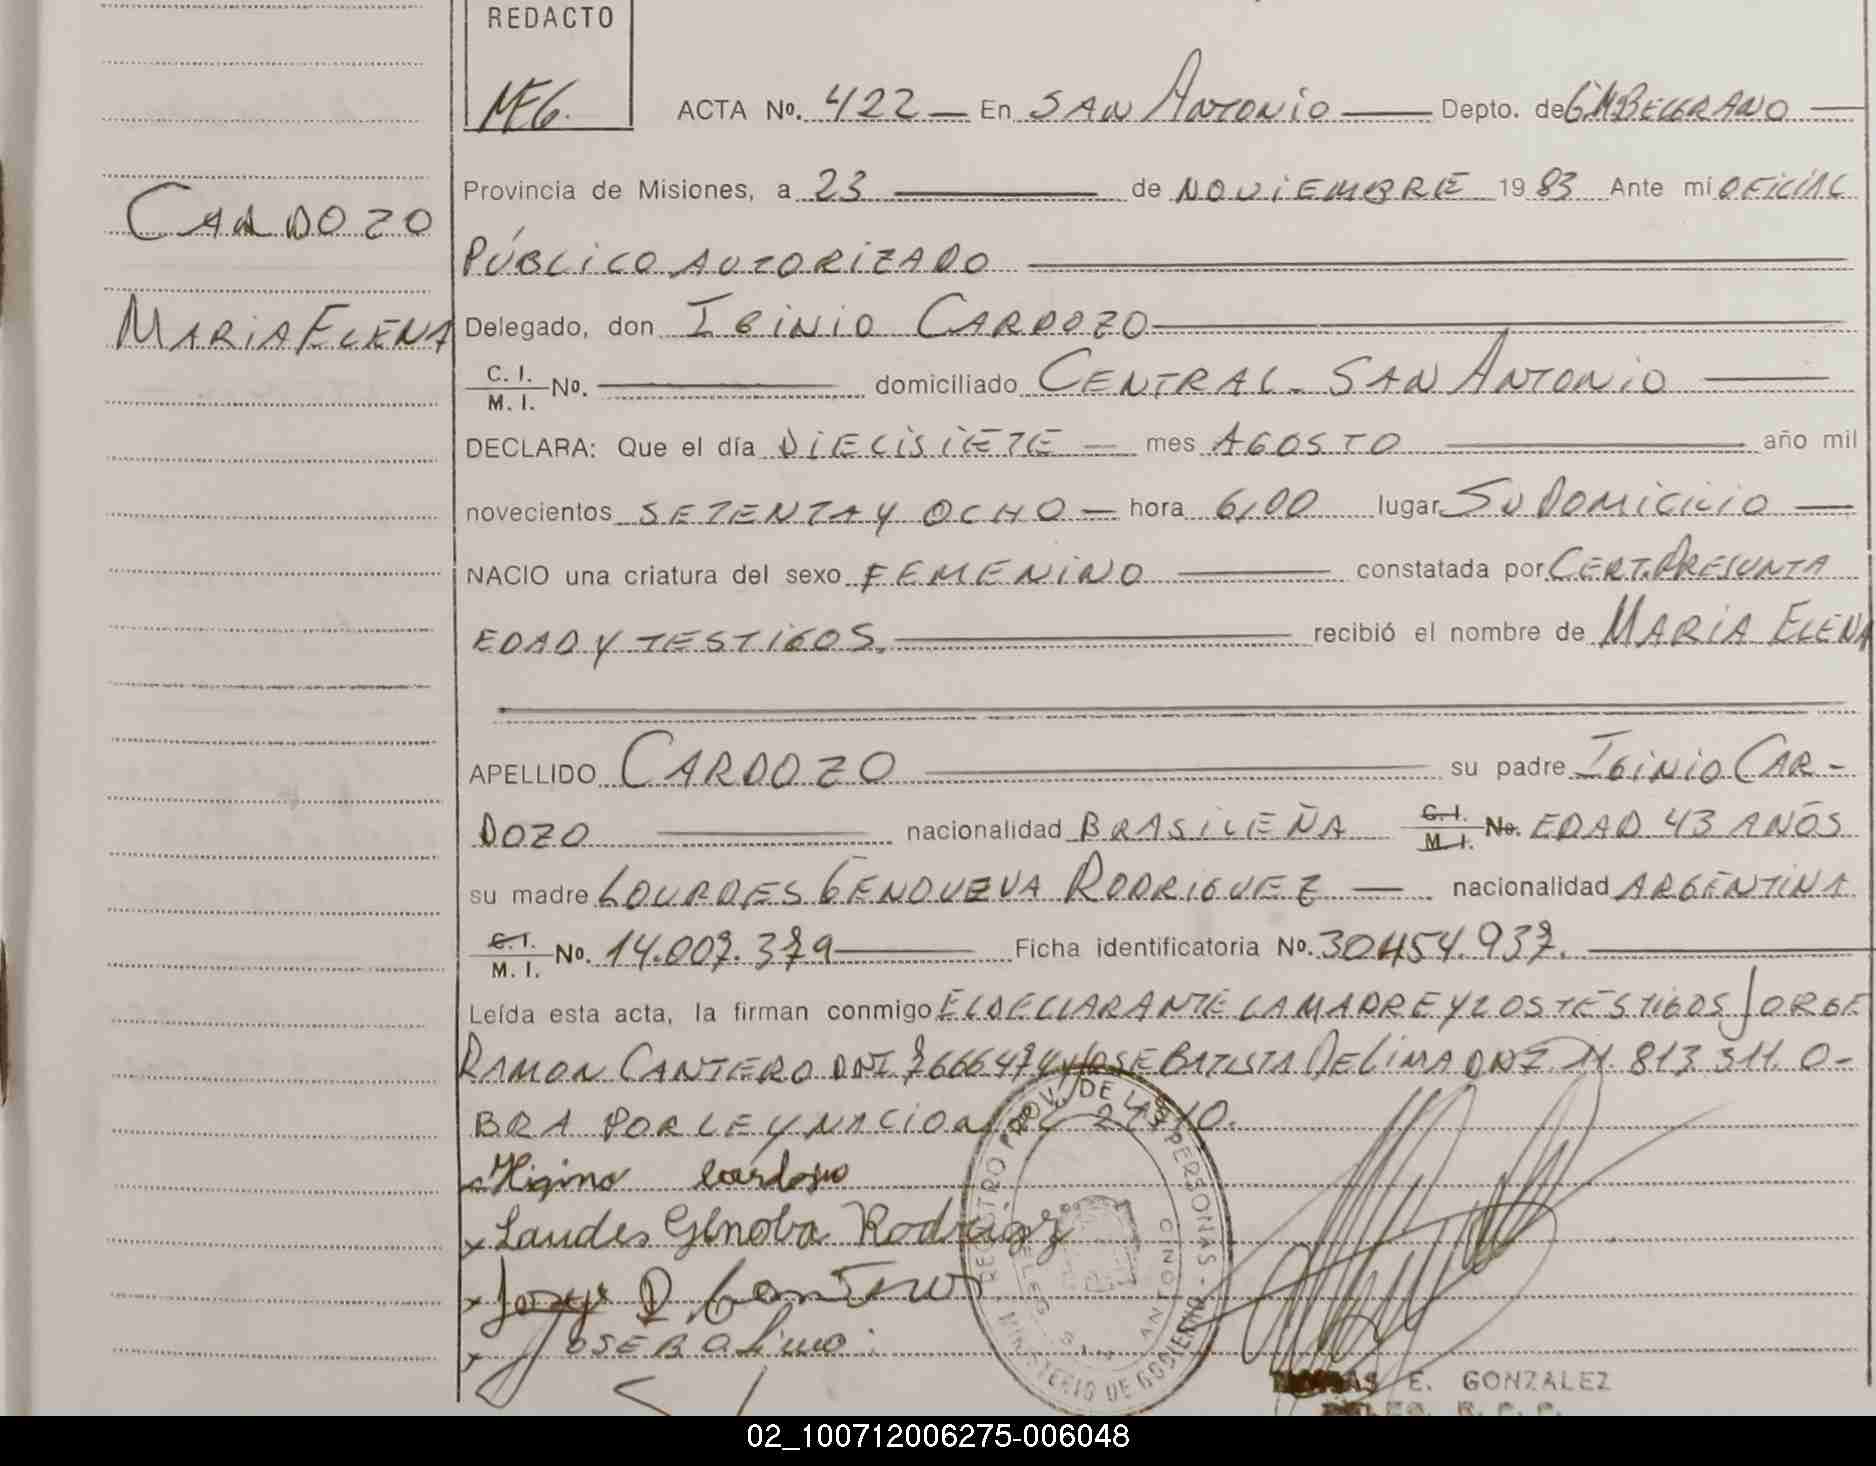 REDACTO
MFG.
ACTA No. 422 En SAN ANTONIO Depto. de G.M.BELGRANO
Provincia de Misiones, a 23 de NOVIEMBRE 1983 Ante mí OFICIAL
CARDOZO
PÚBLICO AUTORIZADO
MARIA ELENA
Delegado, don IGINIO CARDOZO
C. I.
M. I. No. domiciliado CENTRAL - SAN ANTONIO
DECLARA: Que el día DIECISIETE mes AGOSTO año mil
novecientos SETENTA Y OCHO hora 6,00 lugar SU DOMICILIO
NACIO una criatura del sexo FEMENINO constatada por CERT. PRESUNTA
EDAD Y TESTIGOS. recibió el nombre de MARIA ELENA
APELLIDO CARDOZO su padre IGINIO CAR-
DOZO nacionalidad BRASILEÑA C. I. M. I. No. EDAD 43 AÑOS
su madre LOURDES GENOVEVA RODRIGUEZ nacionalidad ARGENTINA
C. I.
M. I. No. 14.007.379 Ficha identificatoria No. 30454.937.
Leída esta acta, la firman conmigo EL DECLARANTE LA MADRE Y LOS TESTIGOS JORGE
RAMON CANTERO DNI 7666474 y JOSE BATISTA DE LIMA DNI. 11.813.311. O-
BRA POR LEY NACIONAL
Higino Cardoso
Laudes Genoba Rodrigez
Jorge R Cantero
JOSE B A Lima
REGISTRO PROV. DE LAS PERSONAS - MINISTERIO DE GOBIERNO
DELEG. SAN ANTONIO
E. GONZALEZ
DELEG. R. P. P.
02_100712006275-006048